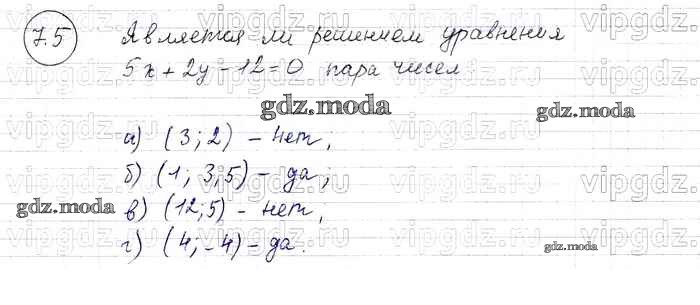 7.5 Является ли решением уравнения
5x + 2y - 12 = 0 пара чисел
gdz.moda
а) (3; 2) - нет;
б) (1; 3,5) - да;
в) (12; 5) - нет,
gdz.moda
г) (4; -4) - да.
gdz.moda
vipgdz.ru